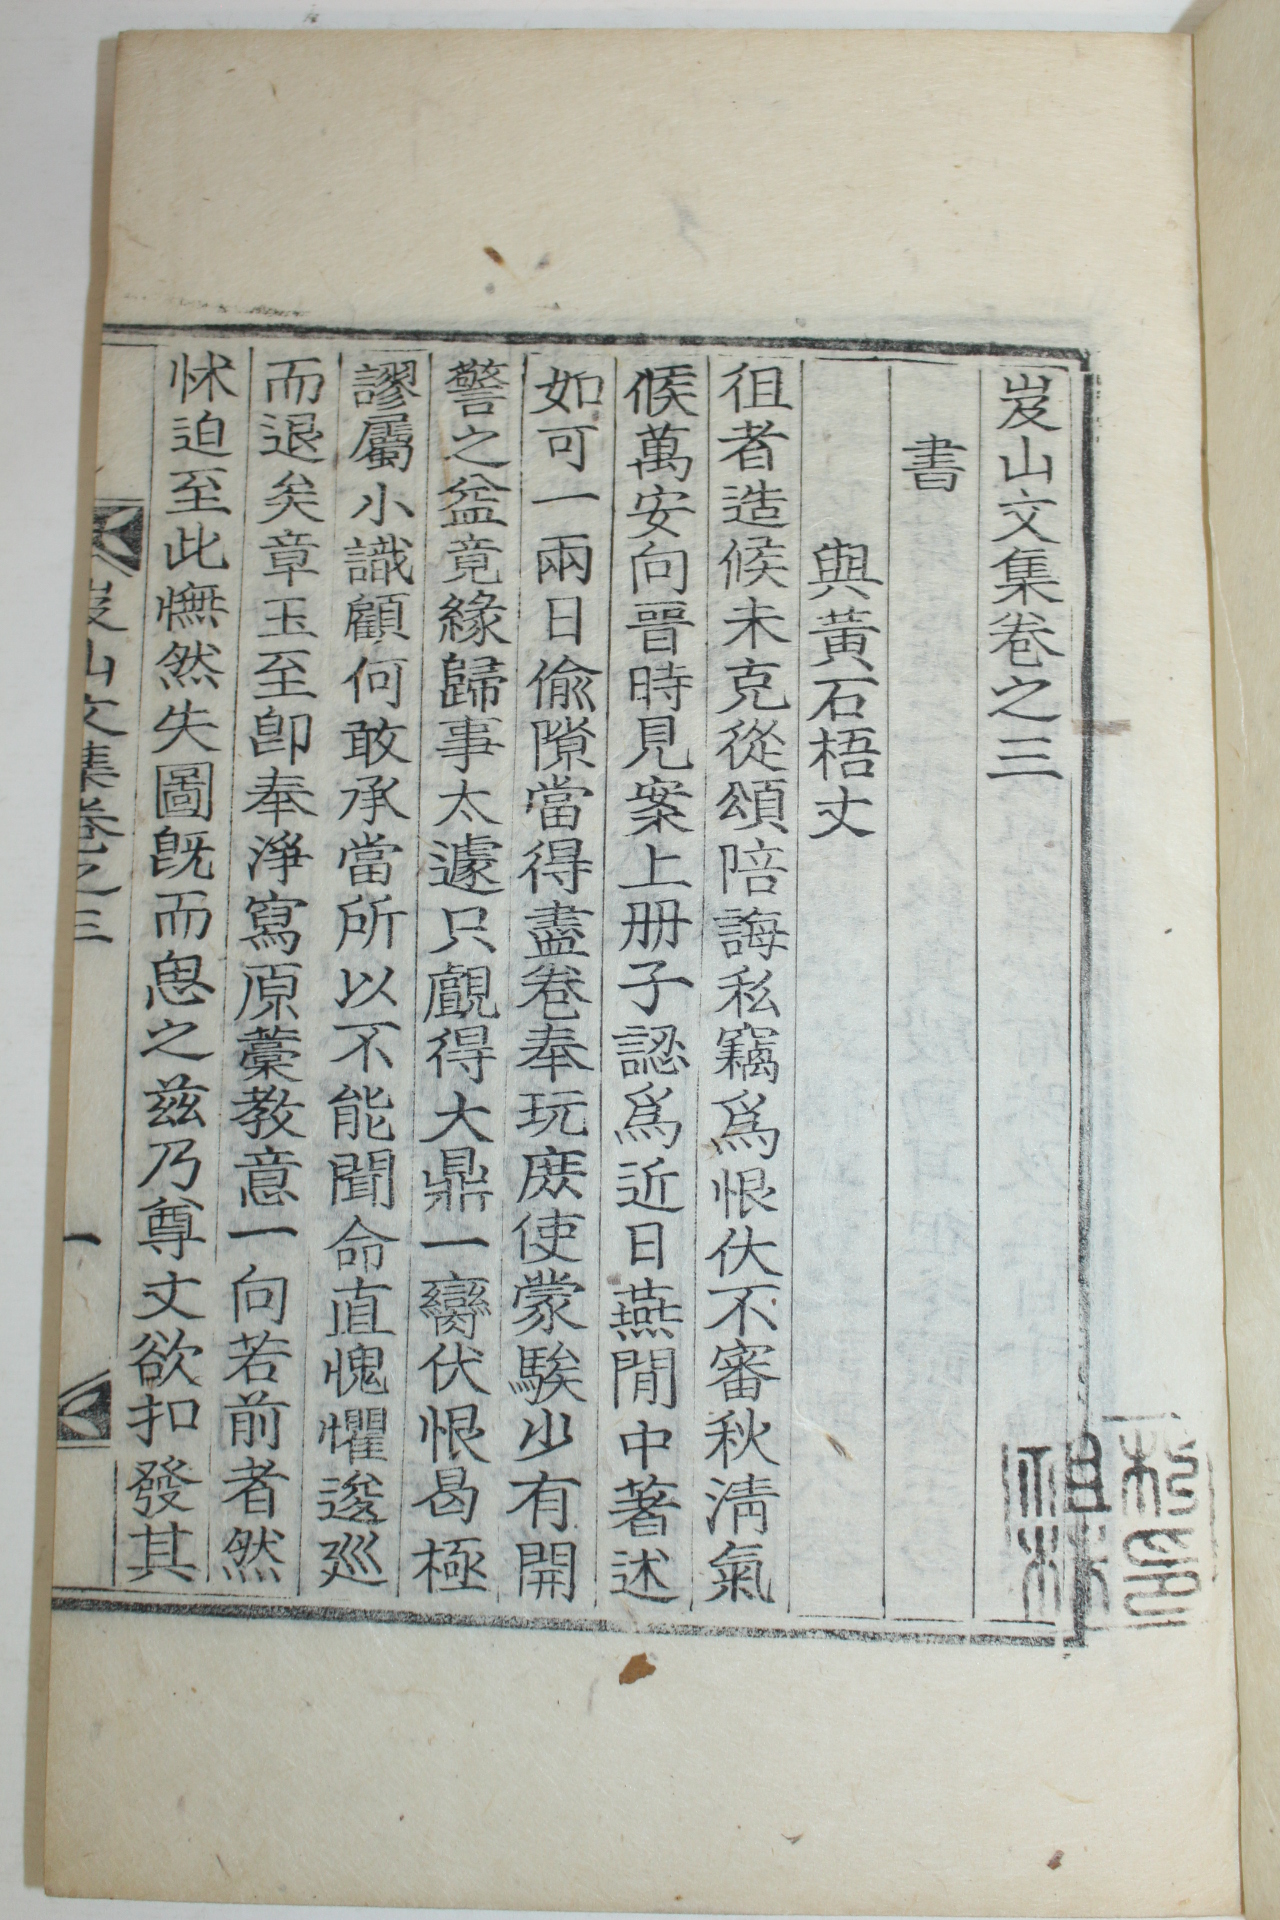 岌山文集卷之三
書
與黃石梧丈
徂者造候未克從頌陪誨私竊爲恨伏不審秋淸氣
候萬安向晉時見案上册子認爲近日燕閒中著述
如可一兩日偸隙當得盡卷奉玩庶使蒙騃少有開
警之益竟緣歸事太遽只覰得大鼎一臠伏恨曷極
謬屬小識顧何敢承當所以不能聞命直愧懼逡巡
而退矣章玉至卽奉淨寫原藁教意一向若前者然
怵迫至此憮然失圖旣而思之玆乃尊丈欲扣發其
岌山文集卷之三 一